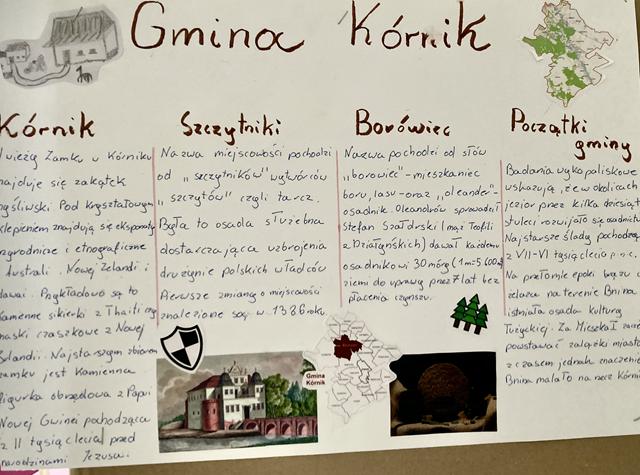 Gmina Kórnik
Kórnik
wieżą Zamku w Kórniku
znajduje się zakątek
myśliwski Pod kryształowym
sklepieniem znajdują się eksponaty
przyrodnicze i etnograficzne
Australi, Nowej Zelandi i
Przykładowo są to
kamienne sikierki z Thaiti czy
maski czaszkowe z Nowej
Zelandii. Najstarszym zbiorem
zamku jest Kamienna
figurka obrzędowa z Papui
Nowej Gwinei pochodząca
z II tysiąclecia przed
narodzinami Jezusa.
Szczytniki
Nazwa miejscowości pochodzi
od "szczytników" wytwórców
"szczytów" czyli tarcz.
Była to osada służebna
dostarczająca uzbrojenia
drużynie polskich władców
Pierwsze zmianą o miejscowości
znalezione są w 1386 roku.
Borówiec
Nazwa pochodzi od słów
"borowiec" - mieszkaniec
boru, lasu - oraz "oleander" -
osadnik. Oleandrów sprowadził
Stefan Szołdrski (mąż Teofili
z Działyńskich) dawał każdemu
osadnikowi 30 mórg (1m=5 600m²)
ziemi do uprawy przez 7 lat bez
płacenia czynszu.
Początki
gminy
Badania wykopaliskowe
wskazują, że w okolicach
jezior przez kilka dziesiąt
stuleci rozwijało się osadnictwo
Najstarsze ślady pochodzą
z VII-VI tysiąclecia p.n.e.
Na przełomie epoki brązu i
żelaza na terenie Bnina
istniała osada kultury
łużyckiej. Za Mieszka I zaczęły
powstawać zalążki miasta
z czasem jednak znaczenie
Bnina malało na rzecz Kórnika
Gmina
Kórnik